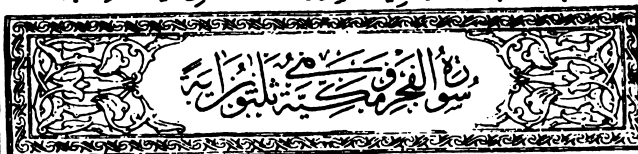 سورة الفجر وهي مكية ثلثون اية